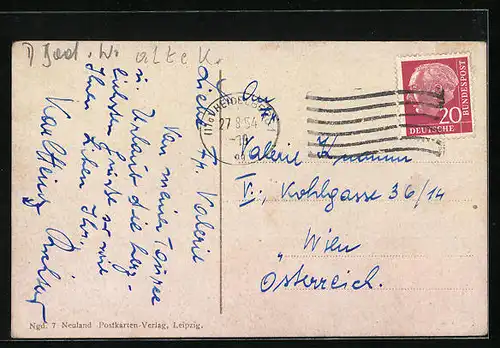 alte K.
Liebe Fr. Valerie
Von meiner Tournee
u. Urlaub die herz-
lichsten Grüsse von
Ihnen Ihr
Karl Heinz
(17a) HEIDELBERG
27.8.54
DEUTSCHE
BUNDESPOST
20
Valerie
V., Kohlgasse 36/14
Wien
Österreich.
Ngd. 7 Neuland Postkarten-Verlag, Leipzig.